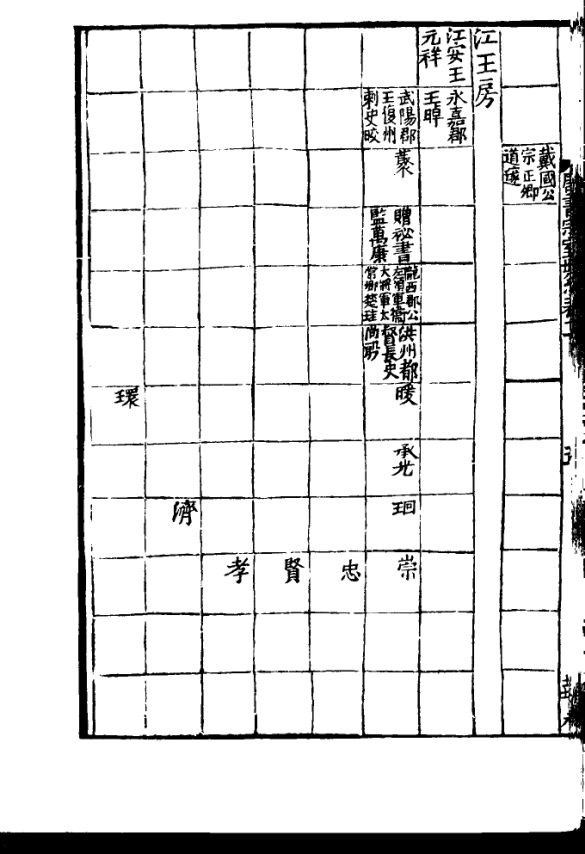 戴國公
宗正卿
道邃
江王房
江安王
元祥
永嘉郡
王晫
武陽郡
王復州
刺史皎
蕤
贈祕書
監萬康
隴西郡公
左領軍衛
大將軍太
常卿楚珪
洪州都
督長史
尚丽
暖
承光
珂
崇
忠
賢
孝
濟
環